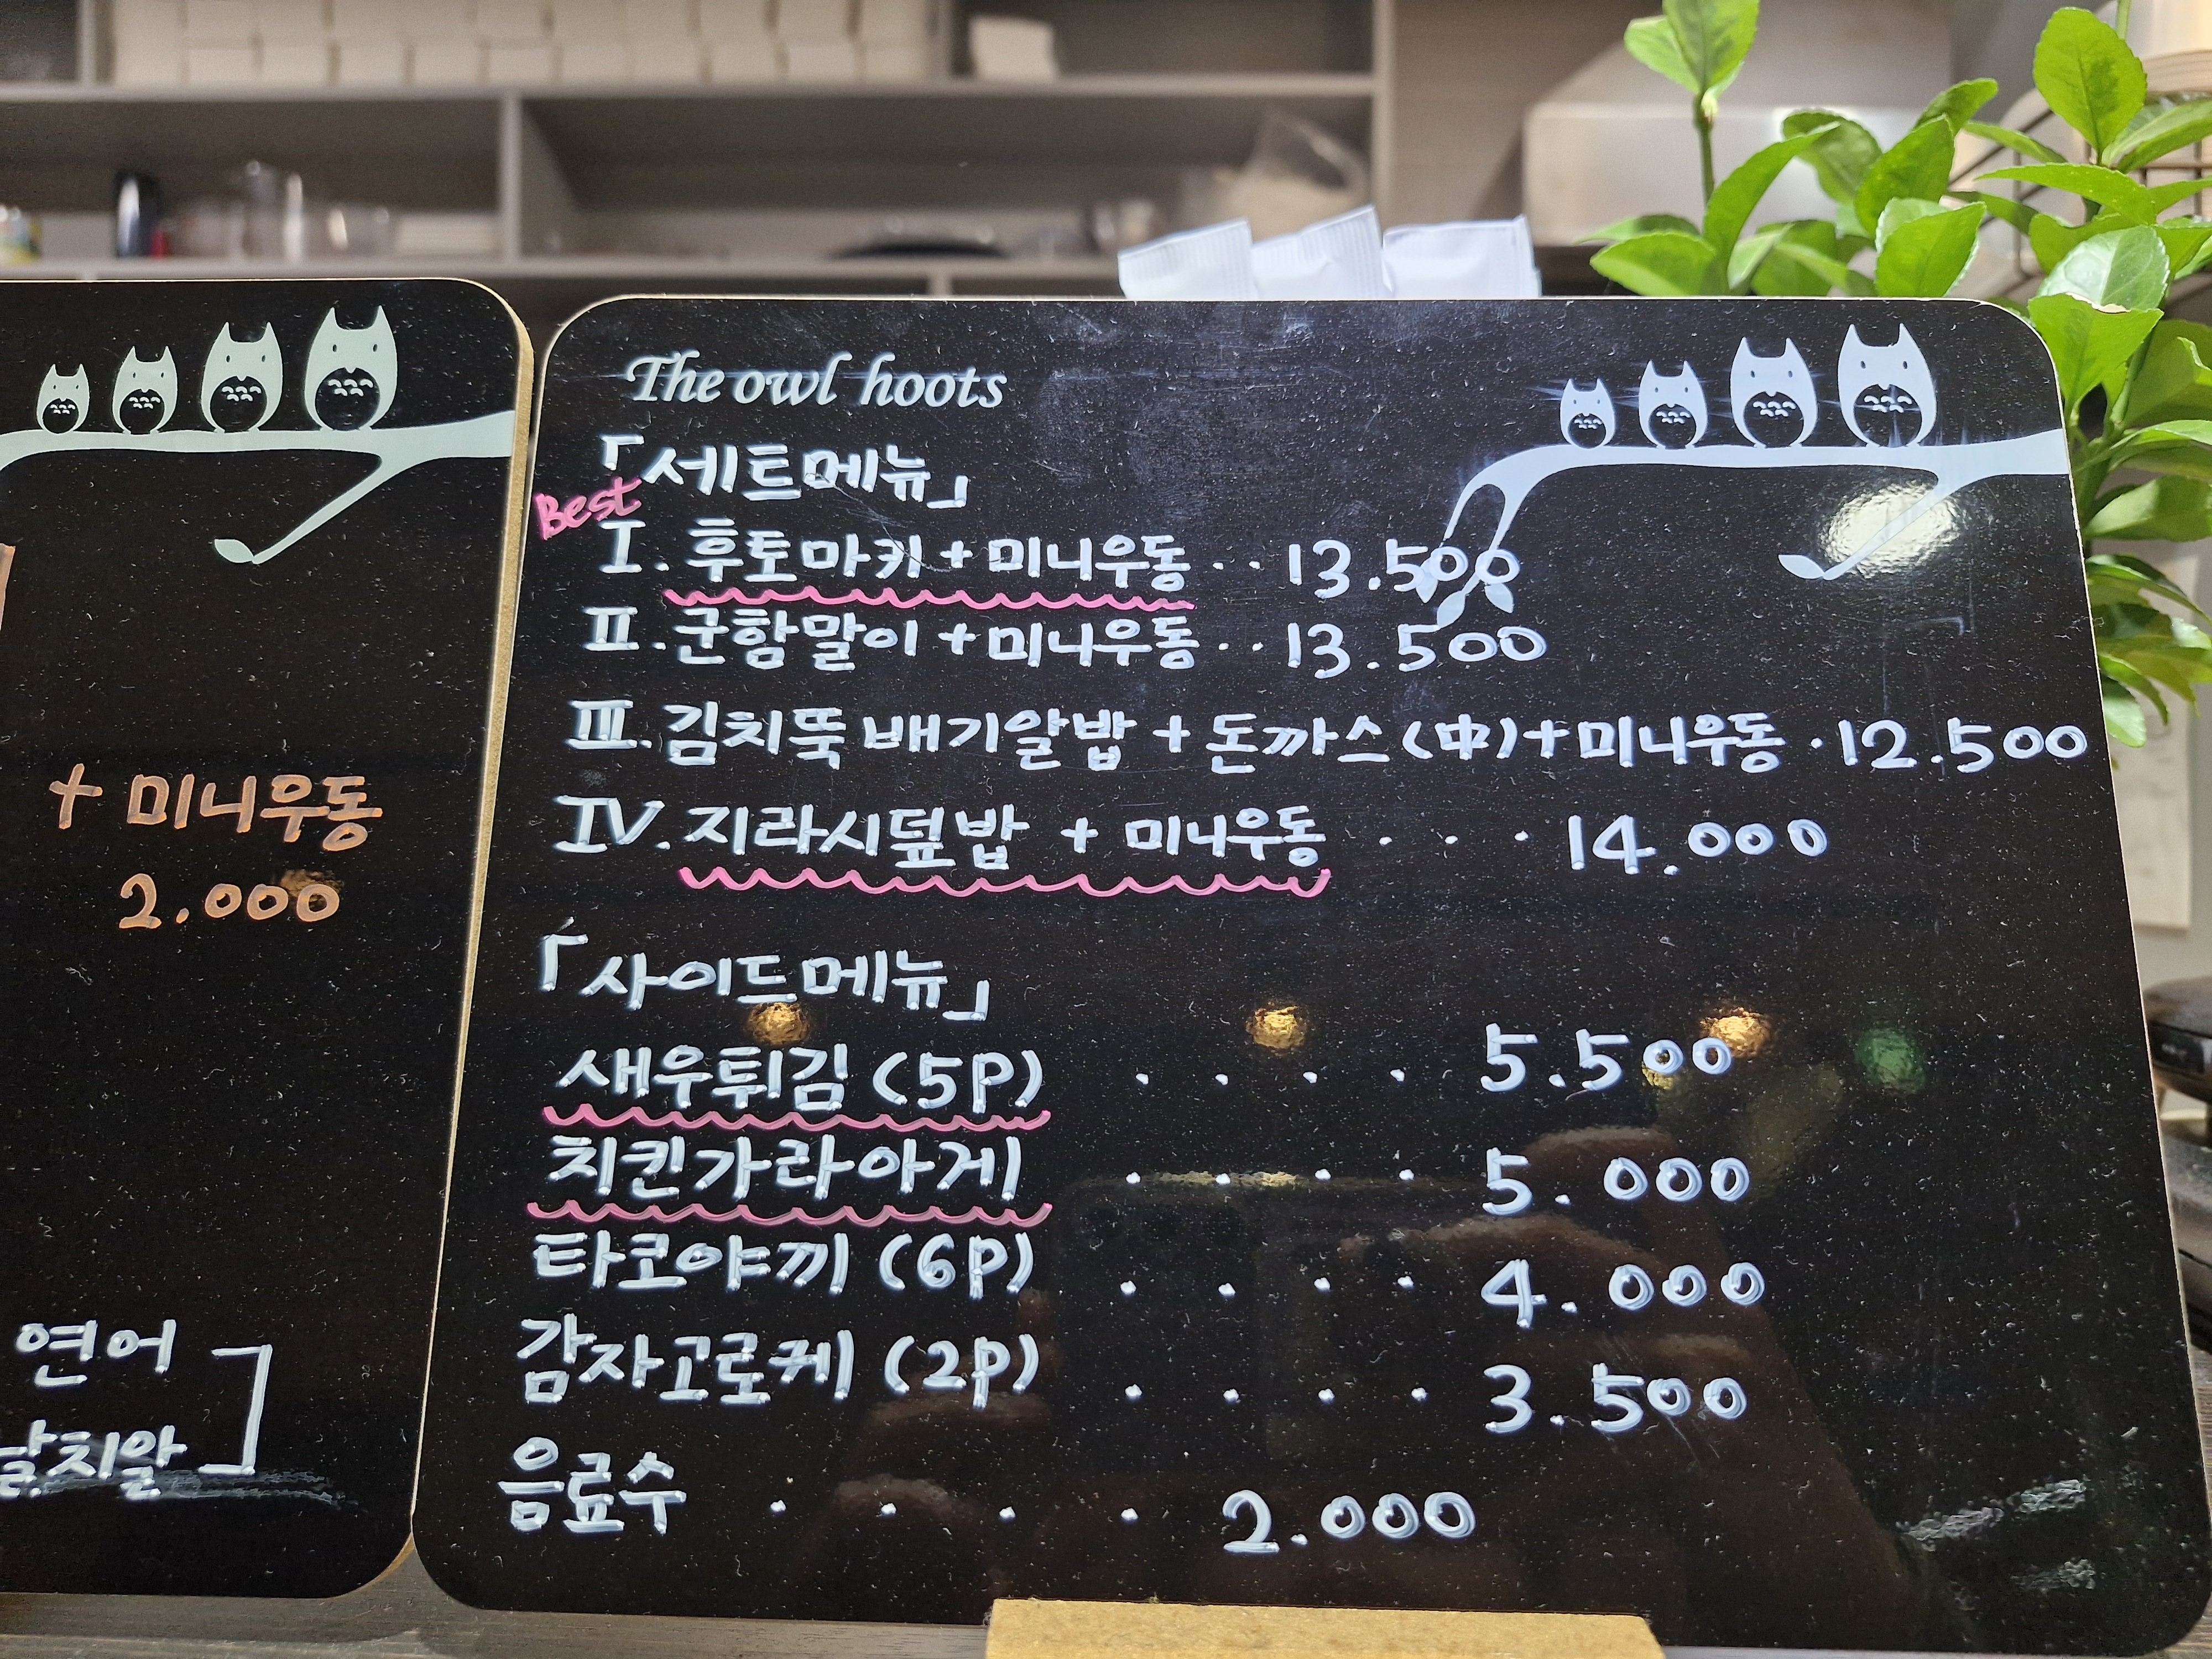 + 미니우동
2.000
연어
날치알
The owl hoots
「세트메뉴」
Best
I. 후토마키 + 미니우동 ‥ 13.500
II. 군함말이 + 미니우동 ‥ 13.500
III. 김치뚝배기알밥 + 돈까스(中) + 미니우동 · 12.500
IV. 지라시덮밥 + 미니우동 . . . 14.000
「사이드메뉴」
새우튀김 (5P) . . . . 5.500
치킨가라아게 . . . . 5.000
타코야끼 (6P) . . . . 4.000
감자고로케 (2P) . . . . 3.500
음료수 . . . . 2.000